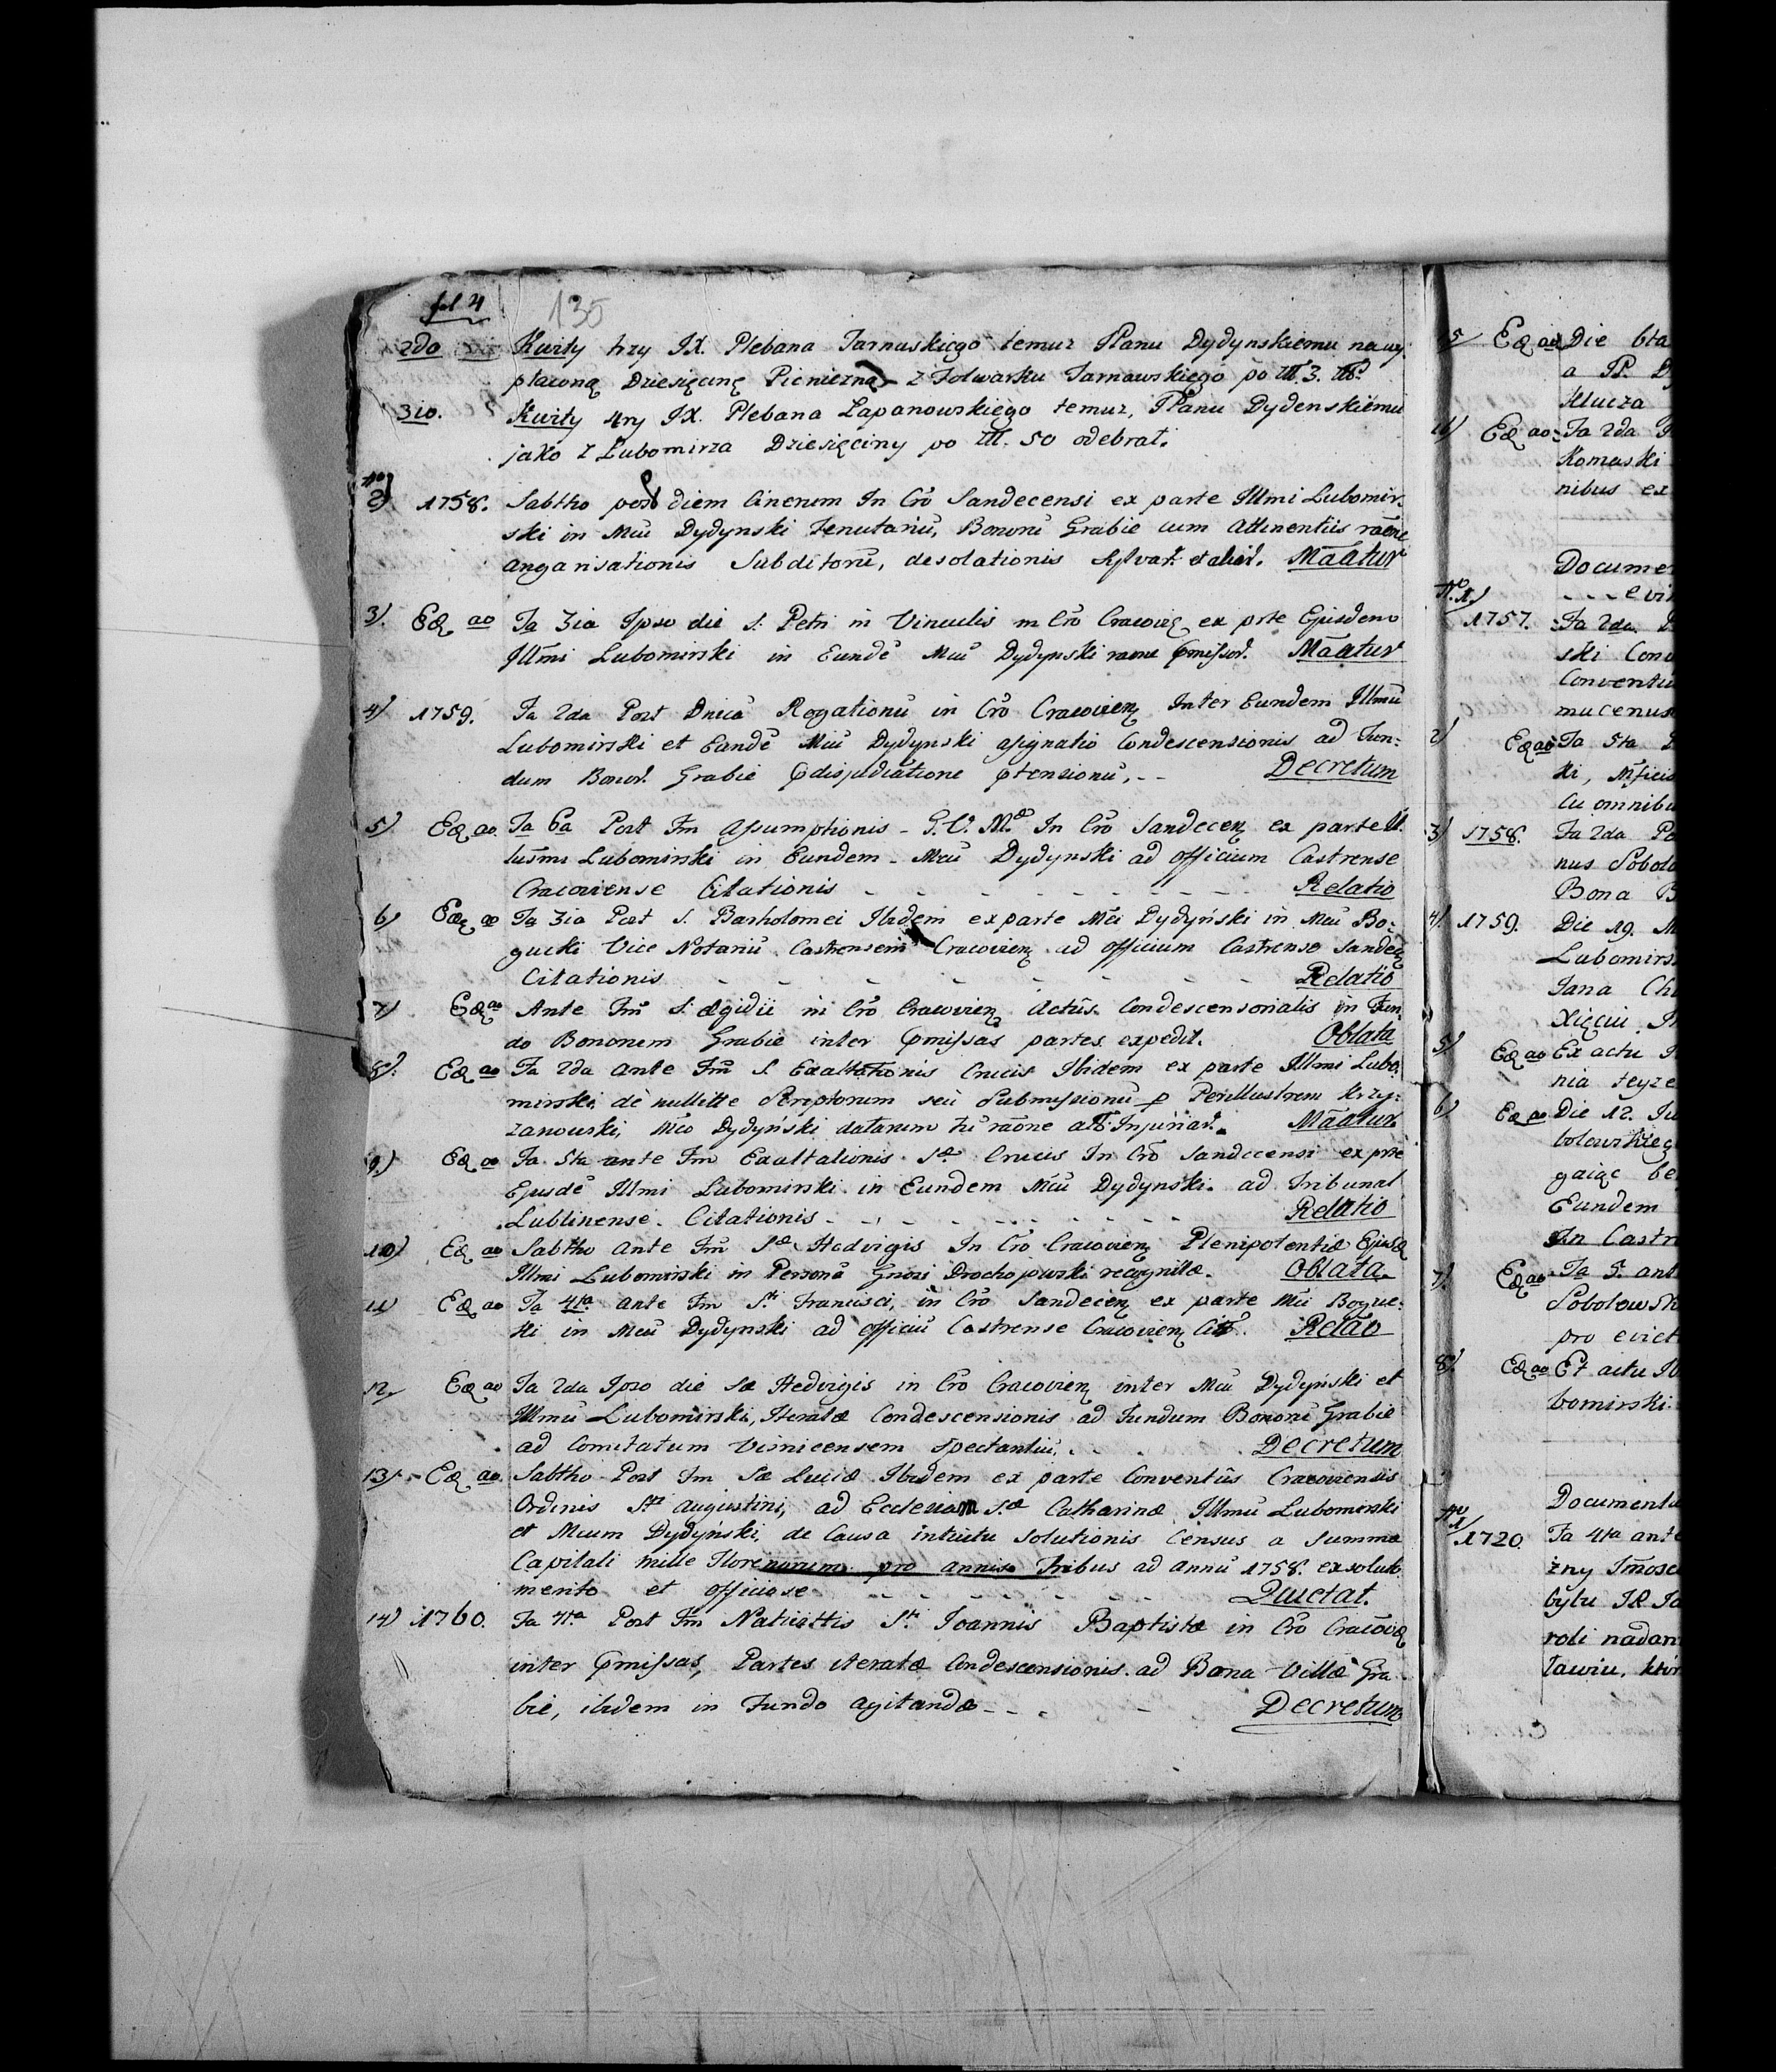 fol 4
135
2do Kwity trzy JX. Plebana Tarnawskiego temuz JPanu Dydynskiemu na wy
płaconą Dziesięcinę Pieniezną z Folwarku Tarnawskiego po 3.
3io. Kwity 4ry JX. Plebana Łapanowskiego temuz, JPanu Dydenskiemu
jako z Lubomirza Dziesięciny po 50 odebrał.
No
2) 1758. Sabtho post diem Cinerum In Crõ Sandecensi ex parte Illmi Lubomir-
ski in Mcũ Dydynski Tenutariũ, Bonorũ Grabie cum Attinentiis raõne
angarisationis Subditorũ, desolationis Sylvar. et aliar. Mãatur
3). Eoq ao Fa 3ia Ipso die S. Petri in Vinculis in Crõ Cracovieg ex prte Ejusdem
Illmi Lubomirski in Eundẽ Mcũ Dydynski raõne pmissor. Mãatur
4) 1759. Fa 2da Post Dnicã Rogationũ in Crõ Cracovien Inter Eundem Illmũ
Lubomirski et Eundẽ Mcũ Dydynski assignatio Condescensionis ad Fun:
dum Bonor. Grabie ptensionũ, - - Decretum
5) Eoq ao Fa 6a Post Fm Assumptionis - In Crõ Sandecen ex parte Il.
lusmi Lubomirski in Eundem - Mcũ Dydynski ad officium Castrense
Cracoviense Citationis - - - - - - Relatio
6) Eoq ao Fa 3ia Post S. Bartholomei Ibidem ex parte Mci Dydyński in Mcũ Bo:
gucki Vice Notariũ Castrensem Cracovien ad officium Castrense Sandec
Citationis - - - - - - Relatio
7) Eoq ao Ante Fm S. Ægidii in Crõ Cracovien Actũs Condescensorialis in Fun
do Bonorum Grabie inter pmissas partes expedit. Oblata
8) Eoq ao Fa 2da ante Fm S Exaltationis Crucis Ibidem ex parte Illmi Lubo
mirski, de nullitte Scriptorum seu Submissionũ p Perillustrem Krzy:
zanowski, Mco Dydyński datarum raõne Injuriar. Mãatur.
9) Eoq ao Fa 5ta ante Fm Exaltationis Sæ Crucis In Crõ Sandecensi ex prte
Ejusdẽ Illmi Lubomirski in Eundem Mcũ Dydynski ad Tribunal
Lublinense Citationis - - - - - - Relatio
10) Eoq ao Sabtho Ante Fm Sæ Hedvigis In Crõ Cracovien Plenipotentiæ Ejusd
Illmi Lubomirski in Personã Gnosi Drochojowski recognitæ. Oblata.
11) Eoq ao Fa 4ta ante Fm Sti Francisci, in Crõ Sandecien ex parte Mci Boguc:
ki in Mcũ Dydynski ad officiũ Castrense Cracovien Cit. Relão
12) Eoq ao Fa 2da Ipso die Sæ Hedvigis in Crõ Cracovien inter Mcũ Dydyński et
Illmũ Lubomirski, Iteratæ Condescensionis ad Fundum Bonorũ Grabie
ad Comitatum Visnicensem Spectantiũ, . . . Decretum
13) Eoq ao. Sabtho Post Fm Sæ Luciæ Ibidem ex parte Conventũs Cracoviensis
Ordinis Sti Augustini, ad Ecclesiam Sæ Catharinæ Illmũ Lubomirski
et Mcum Dydyński, de Causa intuitu solutionis Census a Summa
Capitali mille Florenorum pro annis Tribus ad annũ 1758. exsoluto
mento et officiose - - - - - - Quietat.
14) 1760. Fa 4ta Post Fm Nativittis Sti Joannis Baptistæ in Crõ Cracovieg
inter pmissas, Partes iteratæ Condescensionis ad Bona Villæ Gra-
bie, ibidem in Fundo agitandæ - - - Decretum
15) Eoq ao Die 6ta
a JP.
Klucza
16) Eoq ao Fa 2da
Komaski
nibus ex
Docume
No 1)
1757. Fa 2da
ski Con
Conventu
mucenus
2) Eoq ao Fa 5ta
Cu omnibu
3) 1758. Fa 2da Po
nus Sobolo
Bona B
4) 1759. Die 19. M
Lubomirs
Jana Ch
Xięciu
5) Eoq ao Ex actu
nia teyze
6) Eoq ao Die 12. Ju
bolewskieg
gaiąc be
Eundem
In Castr
7) Eoq ao Fa 5. ant
Sobolewsk
pro evict
8) Eoq ao Et actu Ib
bomirski.
Documenta
No 1)
1720. Fa 4ta ante
zny Jmosc
bytu
roli nadan
ławiu, któr